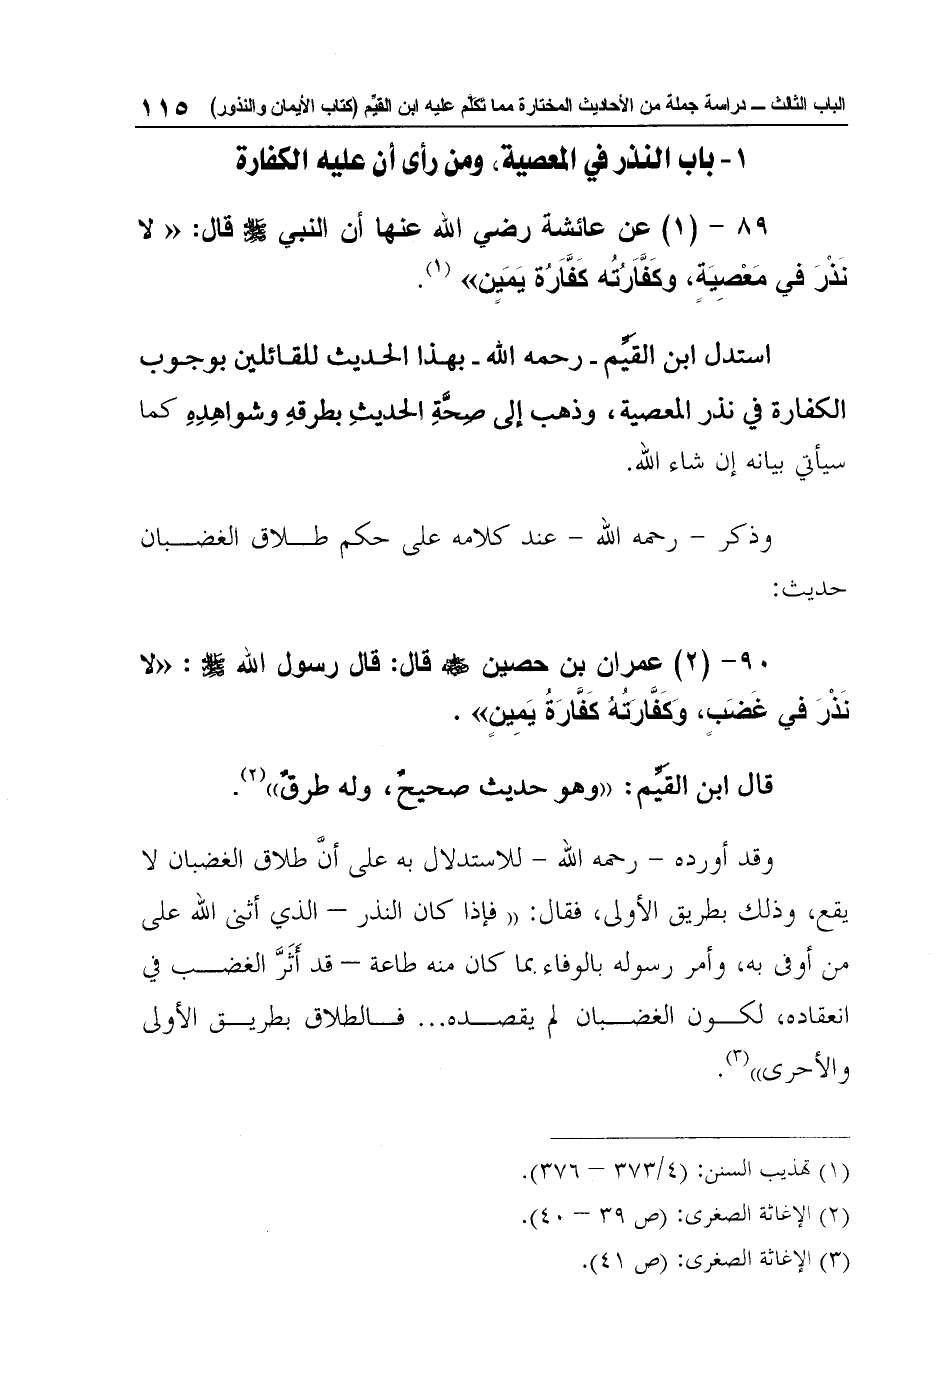 الباب الثالث ــ دراسة جملة من الأحاديث المختارة مما تكلَّم عليه ابن القيِّم (كتاب الأيمان والنذور) ١١٥
١- باب النذر في المعصية، ومن رأى أن عليه الكفارة
٨٩ – (١) عن عائشة رضي الله عنها أن النبي ﷺ قال: «لا
نَذْرَ في مَعْصِيَةٍ، وكَفَّارَتُه كَفَّارَة يَمَينٍ» (١).
استدل ابن القيِّم ـ رحمه الله ـ بهذا الحديث للقائلين بوجوب
الكفارة في نذر المعصية، وذهب إلى صِحَّةِ الحديثِ بطرقهِ وشواهِدِهِ كما
سيأتي بيانه إن شاء الله.
وذكر – رحمه الله – عند كلامه على حكم طـلاق الغضـبان
حديث:
٩٠- (٢) عمران بن حصين ﵁ قال: قال رسول الله ﷺ : «لا
نَذْرَ في غَضَبٍ، وكَفَّارَتُهُ كَفَّارَةُ يَمِينٍ» .
قال ابن القيِّم: «وهو حديث صحيحٌ، وله طرقٌ»(٢).
وقد أورده – رحمه الله – للاستدلال به على أنَّ طلاق الغضبان لا
يقع، وذلك بطريق الأولى، فقال: « فإذا كان النذر – الذي أثنى الله على
من أوفى به، وأمر رسوله بالوفاء بما كان منه طاعة – قد أثَّرَ الغضـب في
انعقاده، لكـون الغضـبان لم يقصـده... فـالطلاق بطريـق الأولى
والأحرى»(٣).
(١) تهذيب السنن: (٣٧٣/٤ – ٣٧٦).
(٢) الإغاثة الصغرى: (ص ٣٩ – ٤٠).
(٣) الإغاثة الصغرى: (ص ٤١).